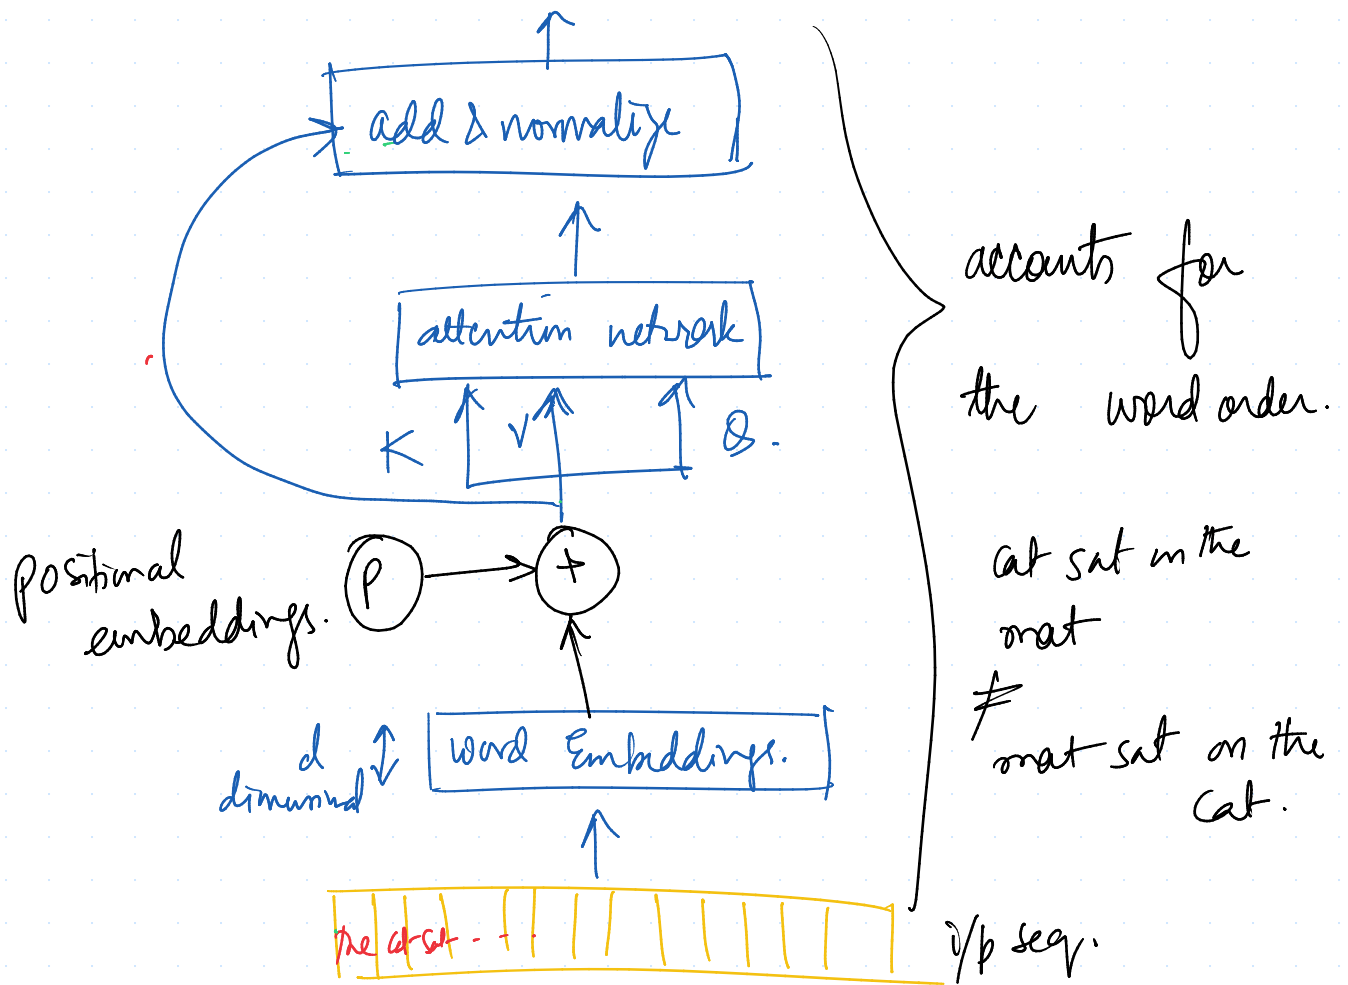 add & normalize
attention network
K V Q.
positional
embeddings.
P
+
word Embeddings.
d
dimensional
The cat sat - - - .
i/p seq.
accounts for
the word order.
cat sat on the
mat
≠
mat sat on the
cat.